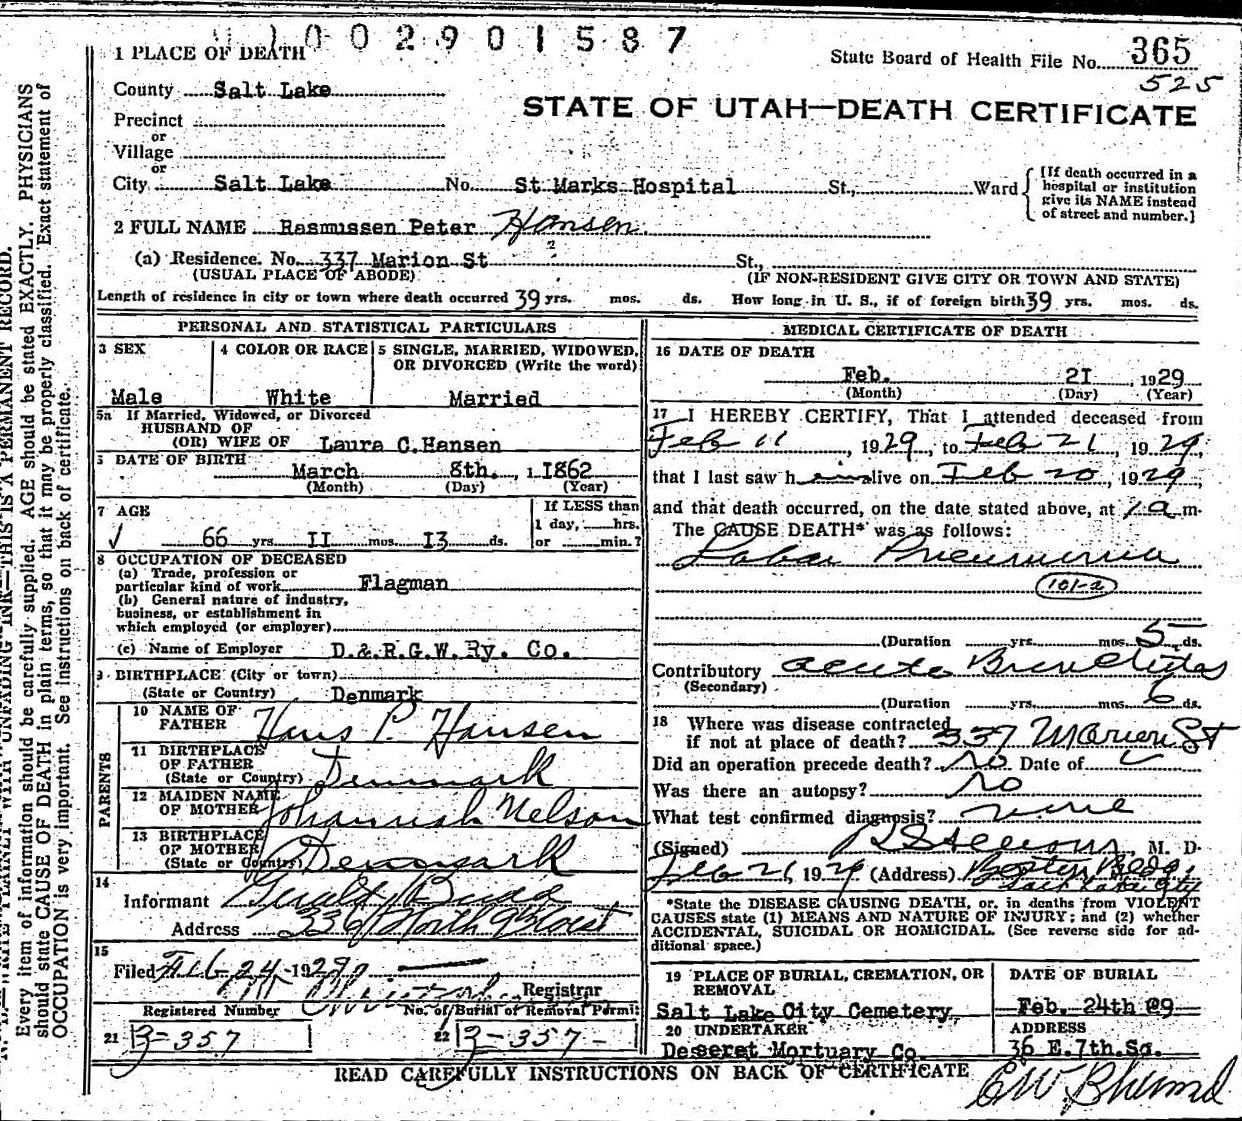 1002901587
1 PLACE OF DEATH
State Board of Health File No. 365
525
County Salt Lake
STATE OF UTAH—DEATH CERTIFICATE
Precinct
or
Village
or
City Salt Lake No. St Marks Hospital St., Ward
[If death occurred in a hospital or institution give its NAME instead of street and number.]
2 FULL NAME Rasmussen Peter Hansen
(a) Residence. No. 337 Marion St St.,
(USUAL PLACE OF ABODE) (IF NON-RESIDENT GIVE CITY OR TOWN AND STATE)
Length of residence in city or town where death occurred 39 yrs. mos. ds. How long in U. S., if of foreign birth 39 yrs. mos. ds.
PERSONAL AND STATISTICAL PARTICULARS
3 SEX
Male
4 COLOR OR RACE
White
5 SINGLE, MARRIED, WIDOWED, OR DIVORCED (Write the word)
Married
5a If Married, Widowed, or Divorced
HUSBAND OF
(OR) WIFE OF Laura C. Hansen
DATE OF BIRTH
March 8th. 1 1862
(Month) (Day) (Year)
7 AGE
66 yrs II mos. I3 ds.
If LESS than
1 day, hrs.
or min.?
8 OCCUPATION OF DECEASED
(a) Trade, profession or
particular kind of work Flagman
(b) General nature of industry,
business, or establishment in
which employed (or employer)
(c) Name of Employer D.&.R.G.W. Ry. Co.
9 BIRTHPLACE (City or town)
(State or Country) Denmark
PARENTS
10 NAME OF
FATHER Hans P. Hansen
11 BIRTHPLACE
OF FATHER
(State or Country) Denmark
12 MAIDEN NAME
OF MOTHER Johannah Nelson
13 BIRTHPLACE
OF MOTHER
(State or Country) Denmark
14
Informant
Address 336 North 9 West
15
Filed Feb 24 1929
Registrar
Registered Number No. of Burial of Removal Permit
21 3-357 22 3-357-
MEDICAL CERTIFICATE OF DEATH
16 DATE OF DEATH
Feb. 2I , 1929
(Month) (Day) (Year)
17 I HEREBY CERTIFY, That I attended deceased from
Feb 11, 1929, to Feb 21, 1929,
that I last saw h im alive on Feb 20, 1929,
and that death occurred, on the date stated above, at 1 a m.
The CAUSE DEATH* was as follows:
Lobar Pneumonia
101-a
(Duration yrs. mos. 5 ds.
Contributory acute Bronchitis
(Secondary)
(Duration yrs. mos. 6 ds.
18 Where was disease contracted
if not at place of death? 337 Marion St
Did an operation precede death? No Date of
Was there an autopsy? no
What test confirmed diagnosis?
(Signed) M. D
Feb 21, 1929 (Address) Boston Bldg
Salt Lake City
*State the DISEASE CAUSING DEATH, or, in deaths from VIOLENT
CAUSES state (1) MEANS AND NATURE OF INJURY; and (2) whether
ACCIDENTAL, SUICIDAL OR HOMICIDAL. (See reverse side for ad-
ditional space.)
19 PLACE OF BURIAL, CREMATION, OR
REMOVAL
Salt Lake City Cemetery
DATE OF BURIAL
Feb. 24th @9
20 UNDERTAKER
Deseret Mortuary Co.
ADDRESS
36 E. 7th. So.
READ CAREFULLY INSTRUCTIONS ON BACK OF CERTIFICATE
Every item of information should be carefully supplied. AGE should be stated EXACTLY. PHYSICIANS
should state CAUSE OF DEATH in plain terms, so that it may be properly classified. Exact statement of
OCCUPATION is very important. See instructions on back of certificate.